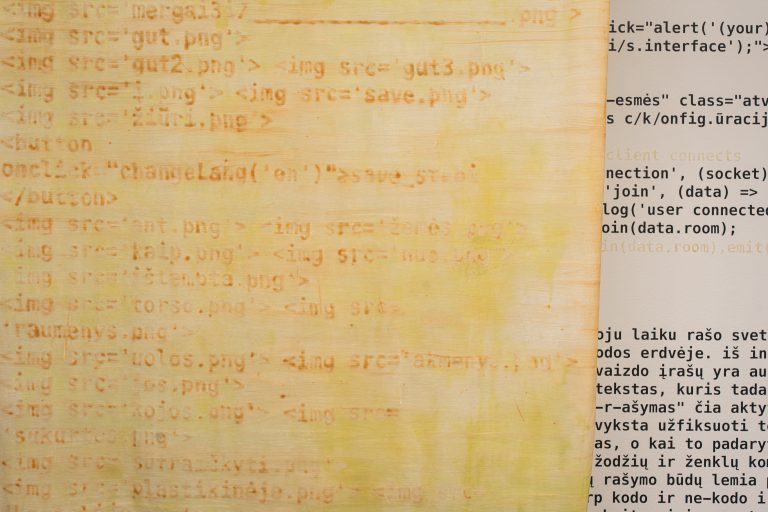 <img src='mergai3i7 .png'>
<img src='gut.png'>
<img src='gut2.png'> <img src='gut3.png'>
<img src='į.png'> <img src='save.png'>
<img src='žiūri.png'>
<button
onclick="changeLang('en')">save_stebi
</button>
<img src='ant.png'> <img src='žemės.png'>
<img src='kaip.png'> <img src='nuo.png'>
<img src='ištempta.png'>
<img src='torso.png'> <img src=
'raumenys.png'>
<img src='uolos.png'> <img src='akmenys.png'>
<img src='jos.png'>
<img src='kojos.png'> <img src=
'sukurtos.png'>
<img src='surraičkyti.png'>
<img src='plastikinėje.png'> <img src=
ick="alert('(your)
i/s.interface');">
-esmės" class="atv
s c/k/onfig.ūracij
client connects
nnection', (socket)
'join', (data) =>
log('user connected
oin(data.room);
in(data.room).emit(
oju laiku rašo svet
odos erdvėje. iš in
vaizdo įrašų yra au
tekstas, kuris tada
-r-ašymas" čia akty
vyksta užfiksuoti t
as, o kai to padary
žodžių ir ženklų ko
ų rašymo būdų lemia p
rp kodo ir ne-kodo i